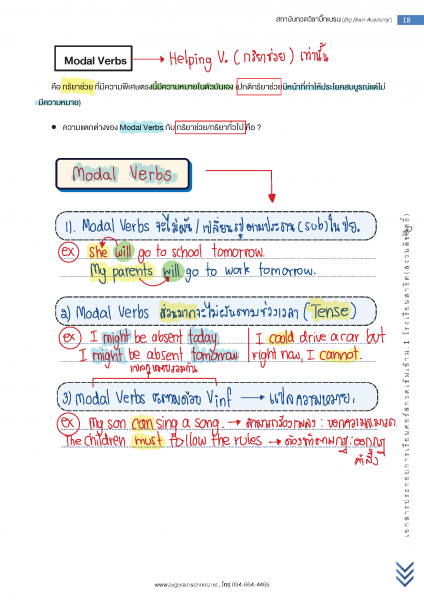 สถาบันกวดวิชาบิ๊กเบรน (Big Brain Academy) 18
Modal Verbs → Helping V. (กริยาช่วย) เท่านั้น
คือ กริยาช่วย ที่มีความพิเศษตรงนี้มีความหมายในตัวมันเอง (ปกติกริยาช่วยมีหน้าที่ทำให้ประโยคสมบูรณ์แต่ไม่
มีความหมาย)
• ความแตกต่างของ Modal Verbs กับ กริยาช่วย/กริยาทั่วไป คือ ?
Modal Verbs
1). Modal Verbs จะไม่ผัน/เปลี่ยนรูปตามประธาน (sub) ใน ปย.
ex She will go to school tomorrow.
My parents will go to work tomorrow.
2) Modal Verbs ส่วนมากจะไม่ผันตามช่วงเวลา (Tense)
ex I might be absent today.
I might be absent tomorrow
I could drive a car but
right now, I cannot.
3) Modal Verbs จะตามด้วย Vinf → แปลความหมาย.
ex My son can sing a song. → สามารถร้องเพลง : บอกความสามารถ.
The children must follow the rules → ต้องทำตามกฎ : ออกกฎ
คำสั่ง
เอกสารประกอบการเรียนคอร์สตะลุยเข้า ม.1 โรงเรียนสาธิต (สงวนลิขสิทธิ์)
www.bigbrainschool.net , โทร 094-664-4465